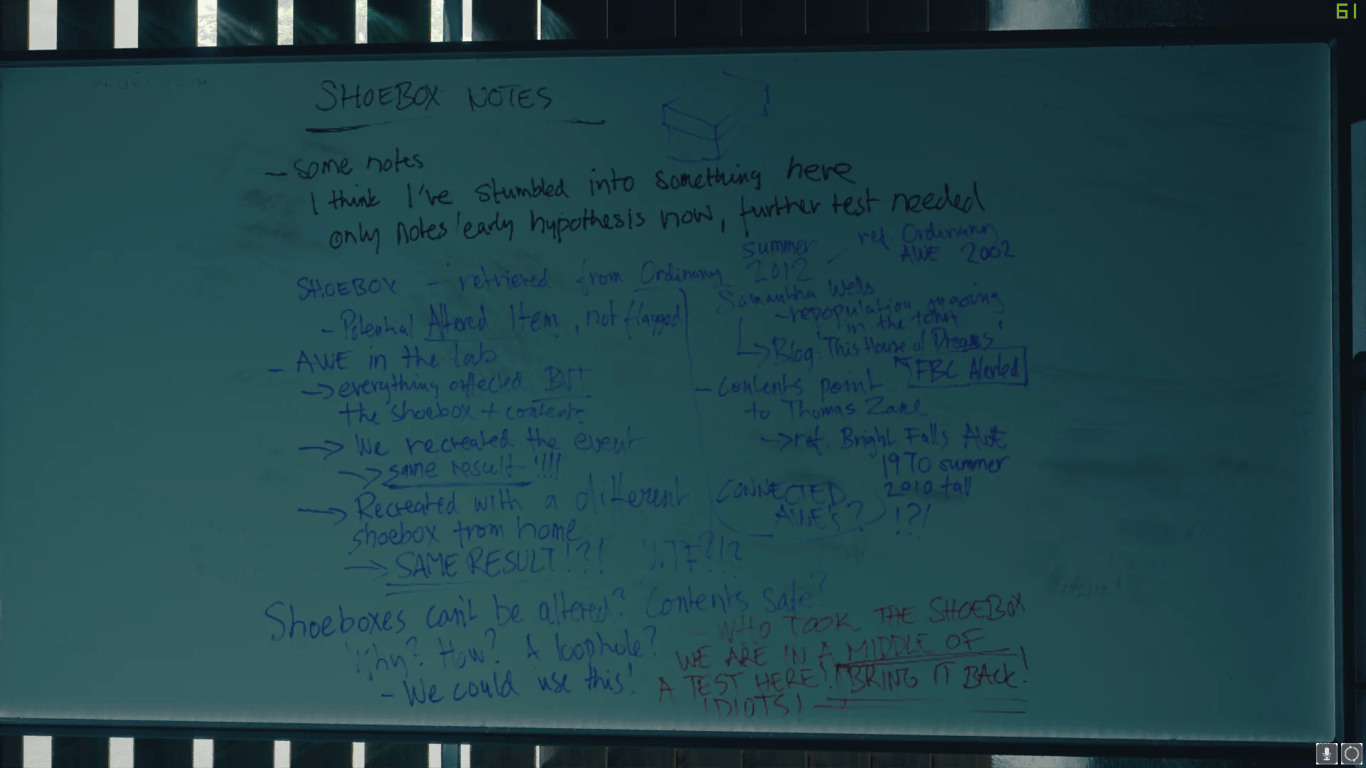 61
SHOEBOX NOTES
- some notes
I think I've stumbled into something here
only notes/early hypothesis now, further test needed
SHOEBOX - retrieved from Ordinary
- Potential Altered Item, not flagged
- AWE in the lab
-> everything affected BUT
the shoebox + contents
-> We recreated the event
-> same result !!!!
-> Recreated with a different
shoebox from home
-> SAME RESULT!?! WTF?!?
summer
2012
ref Ordinary
AWE 2002
Samantha Wells
- repopulation ongoing
in the town
-> Blog: 'This House of Dreams'
FBC Alerted
- Contents point
to Thomas Zane
-> ref. Bright Falls AWE
1970 summer
2010 fall
!?!
CONNECTED
AWE's?
Shoeboxes can't be altered? Contents safe?
Why? How? A loophole?
- We could use this!
- WHO TOOK THE SHOEBOX
WE ARE IN A MIDDLE OF
A TEST HERE! BRING IT BACK!
IDIOTS!